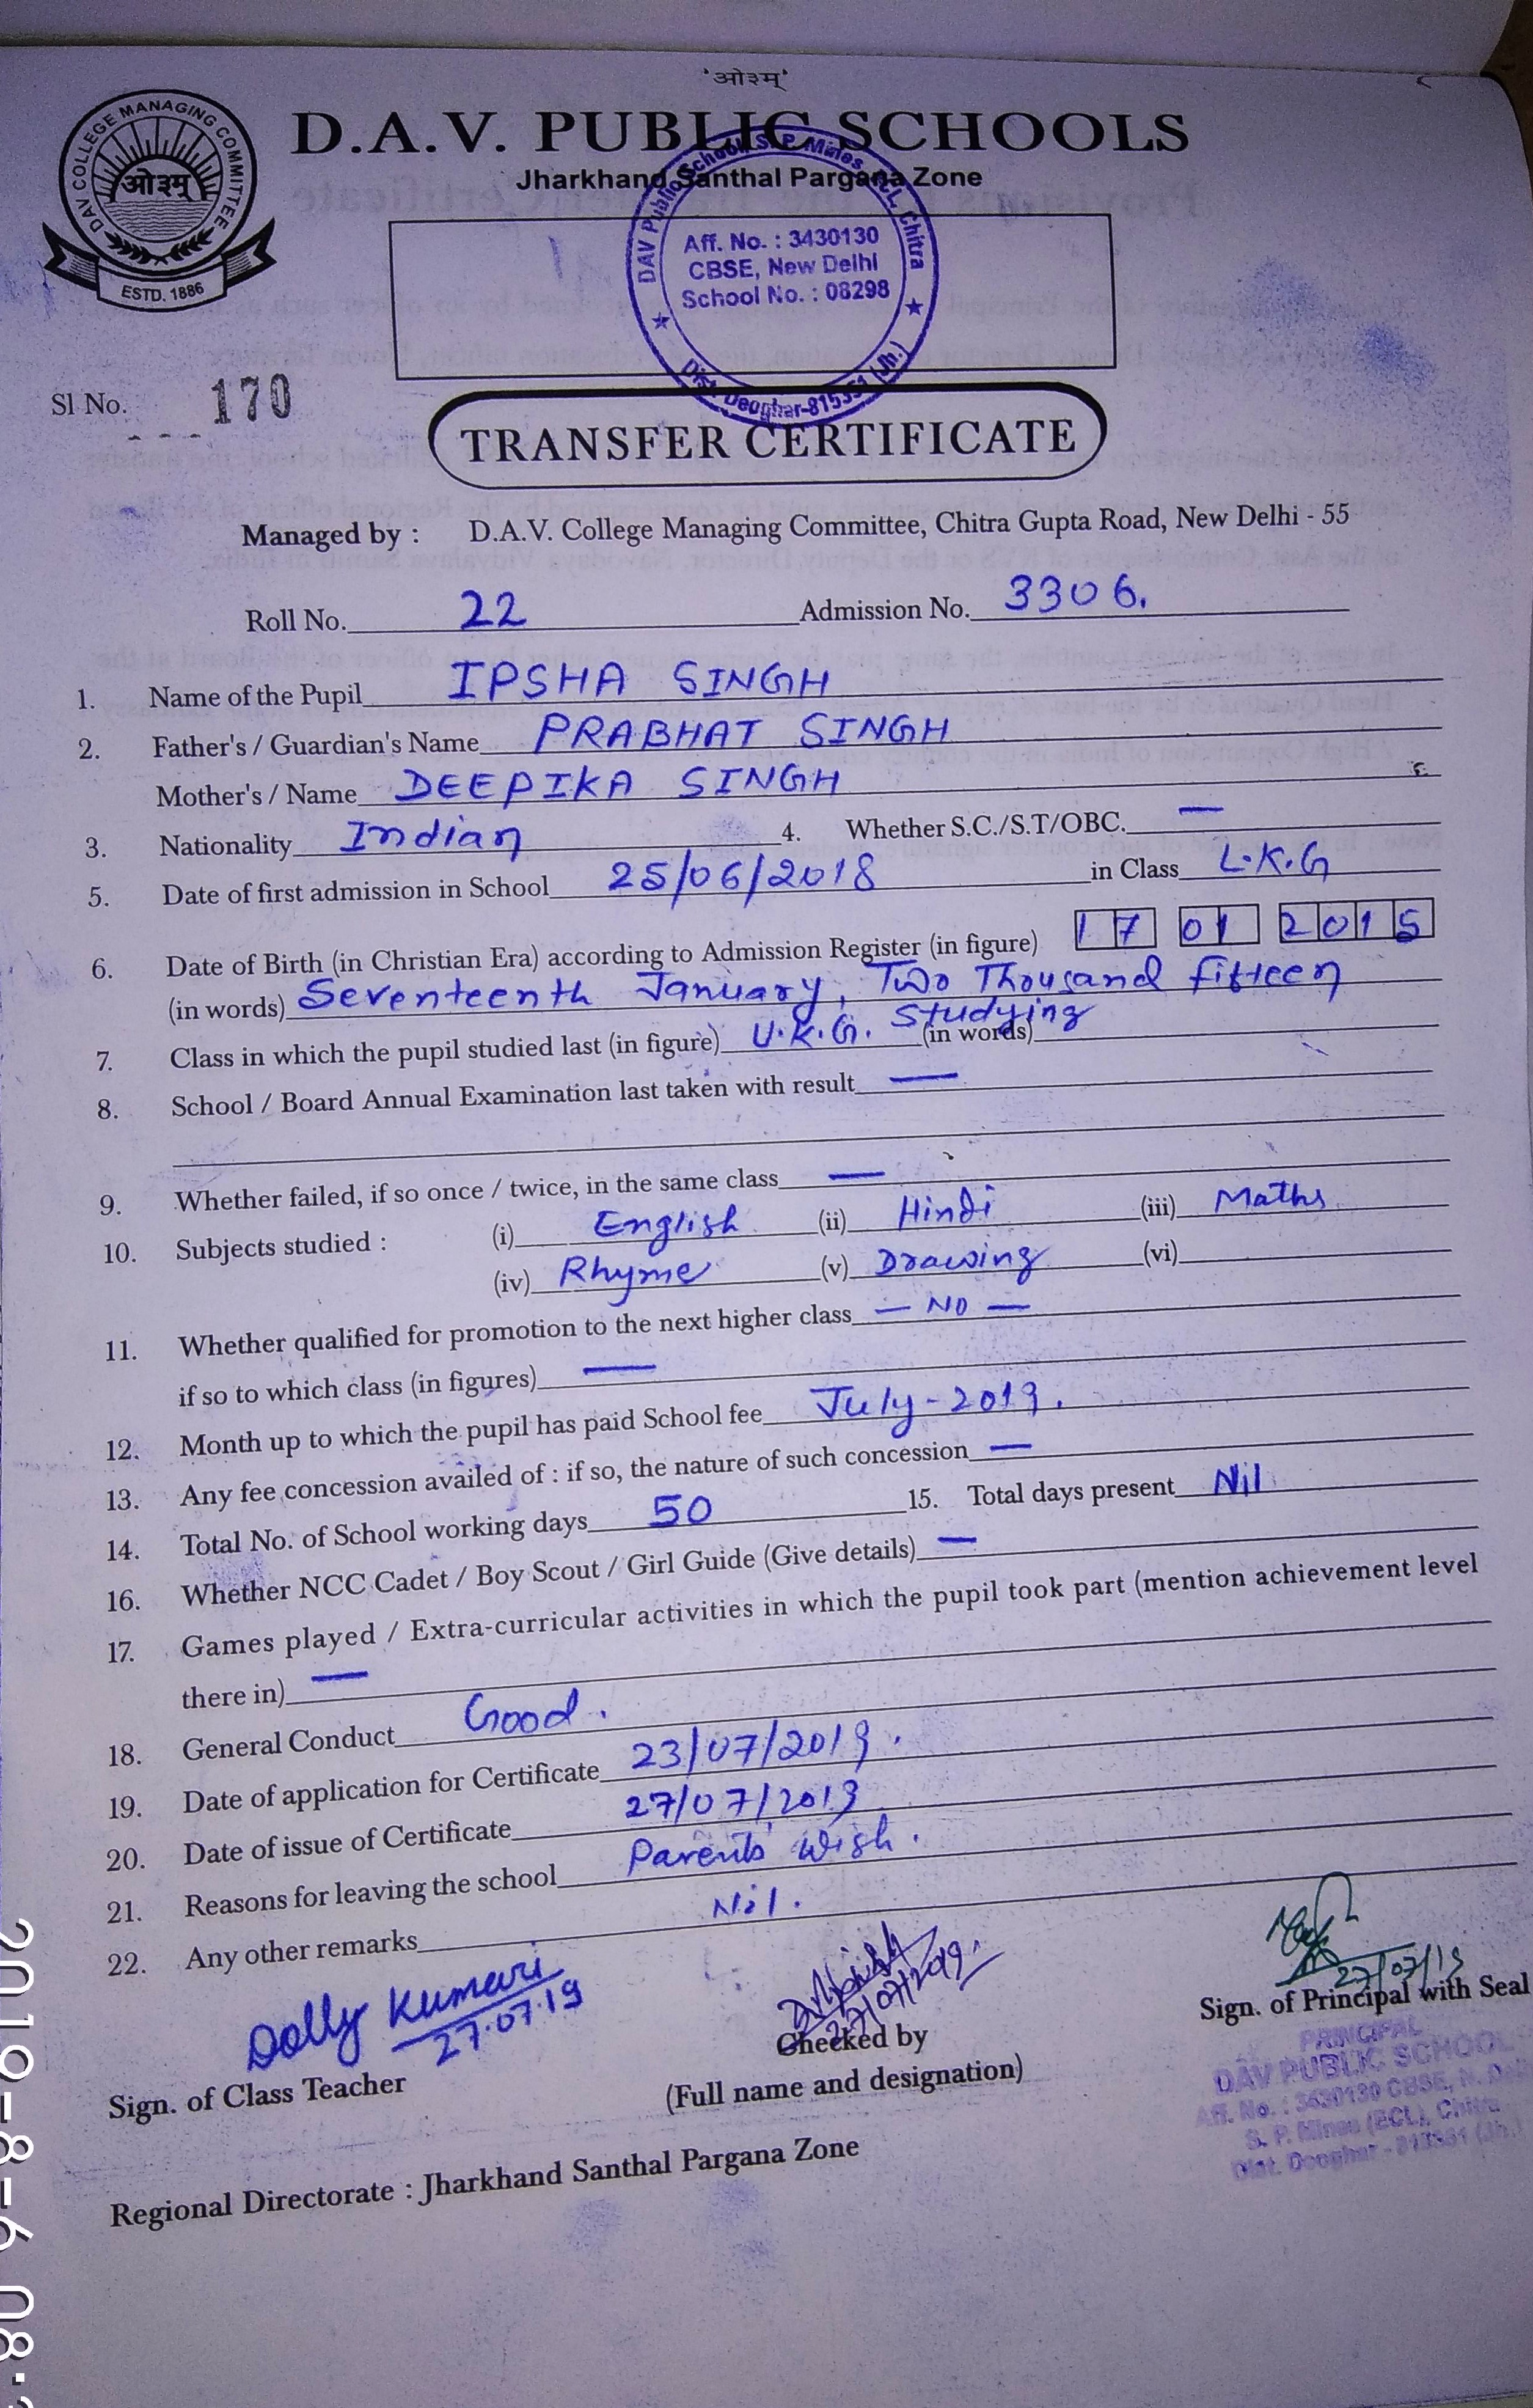 'ओ३म्'
DAV COLLEGE MANAGING COMMITTEE
ओ३म्
ESTD. 1886
D.A.V. PUBLIC SCHOOLS
Jharkhand Santhal Pargana Zone
DAV Public School, S. P. Mines Chitra
Aff. No. : 3430130
CBSE, New Delhi
School No. : 08298
Dist. Deoghar-815351 (Jh.)
Sl No. 170
TRANSFER CERTIFICATE
Managed by : D.A.V. College Managing Committee, Chitra Gupta Road, New Delhi - 55
Roll No. 22 Admission No. 3306.
1. Name of the Pupil IPSHA SINGH
2. Father's / Guardian's Name PRABHAT SINGH
Mother's / Name DEEPIKA SINGH
3. Nationality Indian 4. Whether S.C./S.T/OBC. —
5. Date of first admission in School 25/06/2018 in Class L.K.G
6. Date of Birth (in Christian Era) according to Admission Register (in figure) 17 01 2015
(in words) Seventeenth January, Two Thousand fifteen
7. Class in which the pupil studied last (in figure) U.K.G. Studying (in words)
8. School / Board Annual Examination last taken with result —
9. Whether failed, if so once / twice, in the same class —
10. Subjects studied : (i) English (ii) Hindi (iii) Maths
(iv) Rhyme (v) Drawing (vi)
11. Whether qualified for promotion to the next higher class — NO —
if so to which class (in figures) —
12. Month up to which the pupil has paid School fee July-2019.
13. Any fee concession availed of : if so, the nature of such concession —
14. Total No. of School working days 50 15. Total days present Nil
16. Whether NCC Cadet / Boy Scout / Girl Guide (Give details) —
17. Games played / Extra-curricular activities in which the pupil took part (mention achievement level
there in) —
18. General Conduct Good.
19. Date of application for Certificate 23/07/2019.
20. Date of issue of Certificate 27/07/2019
21. Reasons for leaving the school Parents' Wish.
22. Any other remarks Nil.
Dolly Kumari
27.07.19
27/07/2019.
27/07/19
Sign. of Class Teacher
Checked by
(Full name and designation)
Sign. of Principal with Seal
PRINCIPAL
DAV PUBLIC SCHOOL
Aff. No. : 3430130 CBSE, N. Del
S. P. Mines (ECL), Chitra
Dist. Deoghar - 815351 (Jh.)
Regional Directorate : Jharkhand Santhal Pargana Zone
2019-8-6 08: